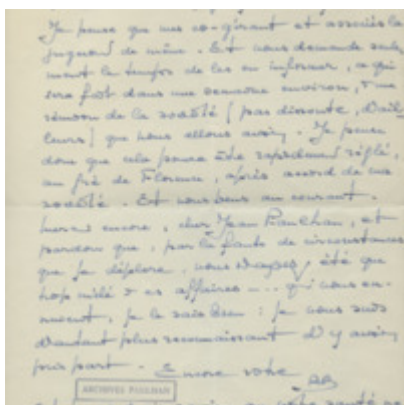 Je pense que mes co-gérant et associés le
jugeront de même. Et vous demande seule-
ment le temps de les en informer, ce qui
sera fait dans une semaine environ, à une
réunion de la société (pas dissoute, d'ail-
leurs) que nous allons avoir. Je pense
donc que cela pourra être rapidement réglé,
au gré de Florence, après accord de ma
société. Et vous tiens au courant.
encore, cher Jean Paulhan, et
pardon que, par la faute de circonstances
que je déplore, vous ayez été que
trop mêlé à ces affaires... qui vous en-
nuient, je le sais bien : je vous suis
d'autant plus reconnaissant d'y avoir
pris part. Encore votre
ARCHIVES PAULHAN